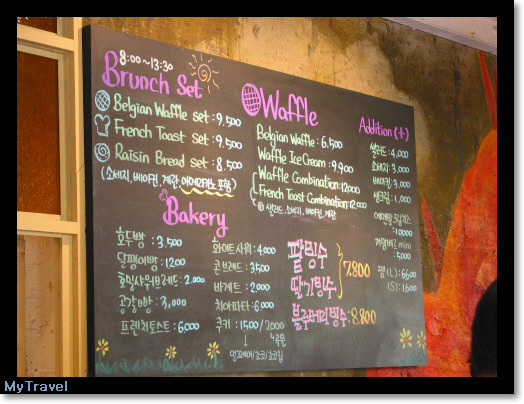 8:00~13:30
Brunch Set
Belgian Waffle set : 9,500
French Toast set : 9,500
Raisin Bread set : 8,500
(소시지, 베이컨, 계란, 아메리카노 포함)
Waffle
Belgian Waffle : 6,500
Waffle Ice Cream : 9,900
Waffle Combination : 12,000
French Toast Combination : 12,000
샐러드, 소시지, 베이컨, 계란
Addition (+)
샐러드 : 4,000
소시지 : 3,000
베이컨 : 3,000
생크림 : 1,000
10,000
mini
5,000
(L) : 6600
(S) : 1600
Bakery
호두빵 : 3,500
달팽이빵 : 1200
2,000
공갈빵 : 3,000
프렌치토스트 : 6000
화이트사워 : 4000
콘브레드 : 3500
바게트 : 2000
치아바타 : 6000
쿠키 : 1500/2000
팥빙수
딸기빙수
7.800
블루베리빙수 : 8.800
MyTravel